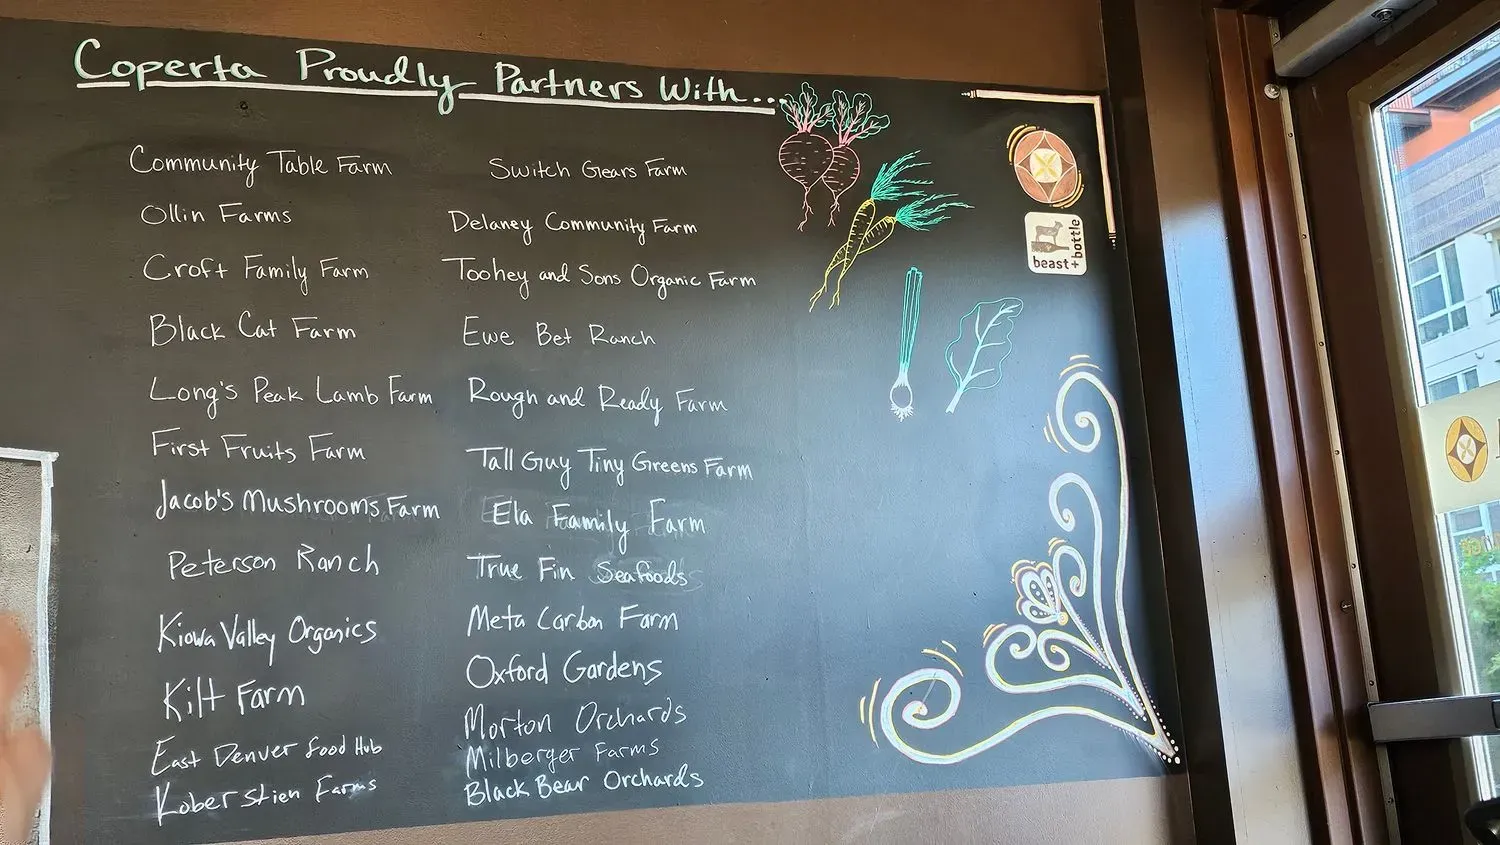 Coperta Proudly Partners With...
Community Table Farm
Ollin Farms
Croft Family Farm
Black Cat Farm
Long's Peak Lamb Farm
First Fruits Farm
Jacob's Mushrooms Farm
Peterson Ranch
Kiowa Valley Organics
Kilt Farm
East Denver Food Hub
Koberstien Farms
Switch Gears Farm
Delaney Community Farm
Toohey and Sons Organic Farm
Ewe Bet Ranch
Rough and Ready Farm
Tall Guy Tiny Greens Farm
Ela Family Farm
True Fin Seafoods
Meta Carbon Farm
Oxford Gardens
Morton Orchards
Milberger Farms
Black Bear Orchards
beast+
bottle